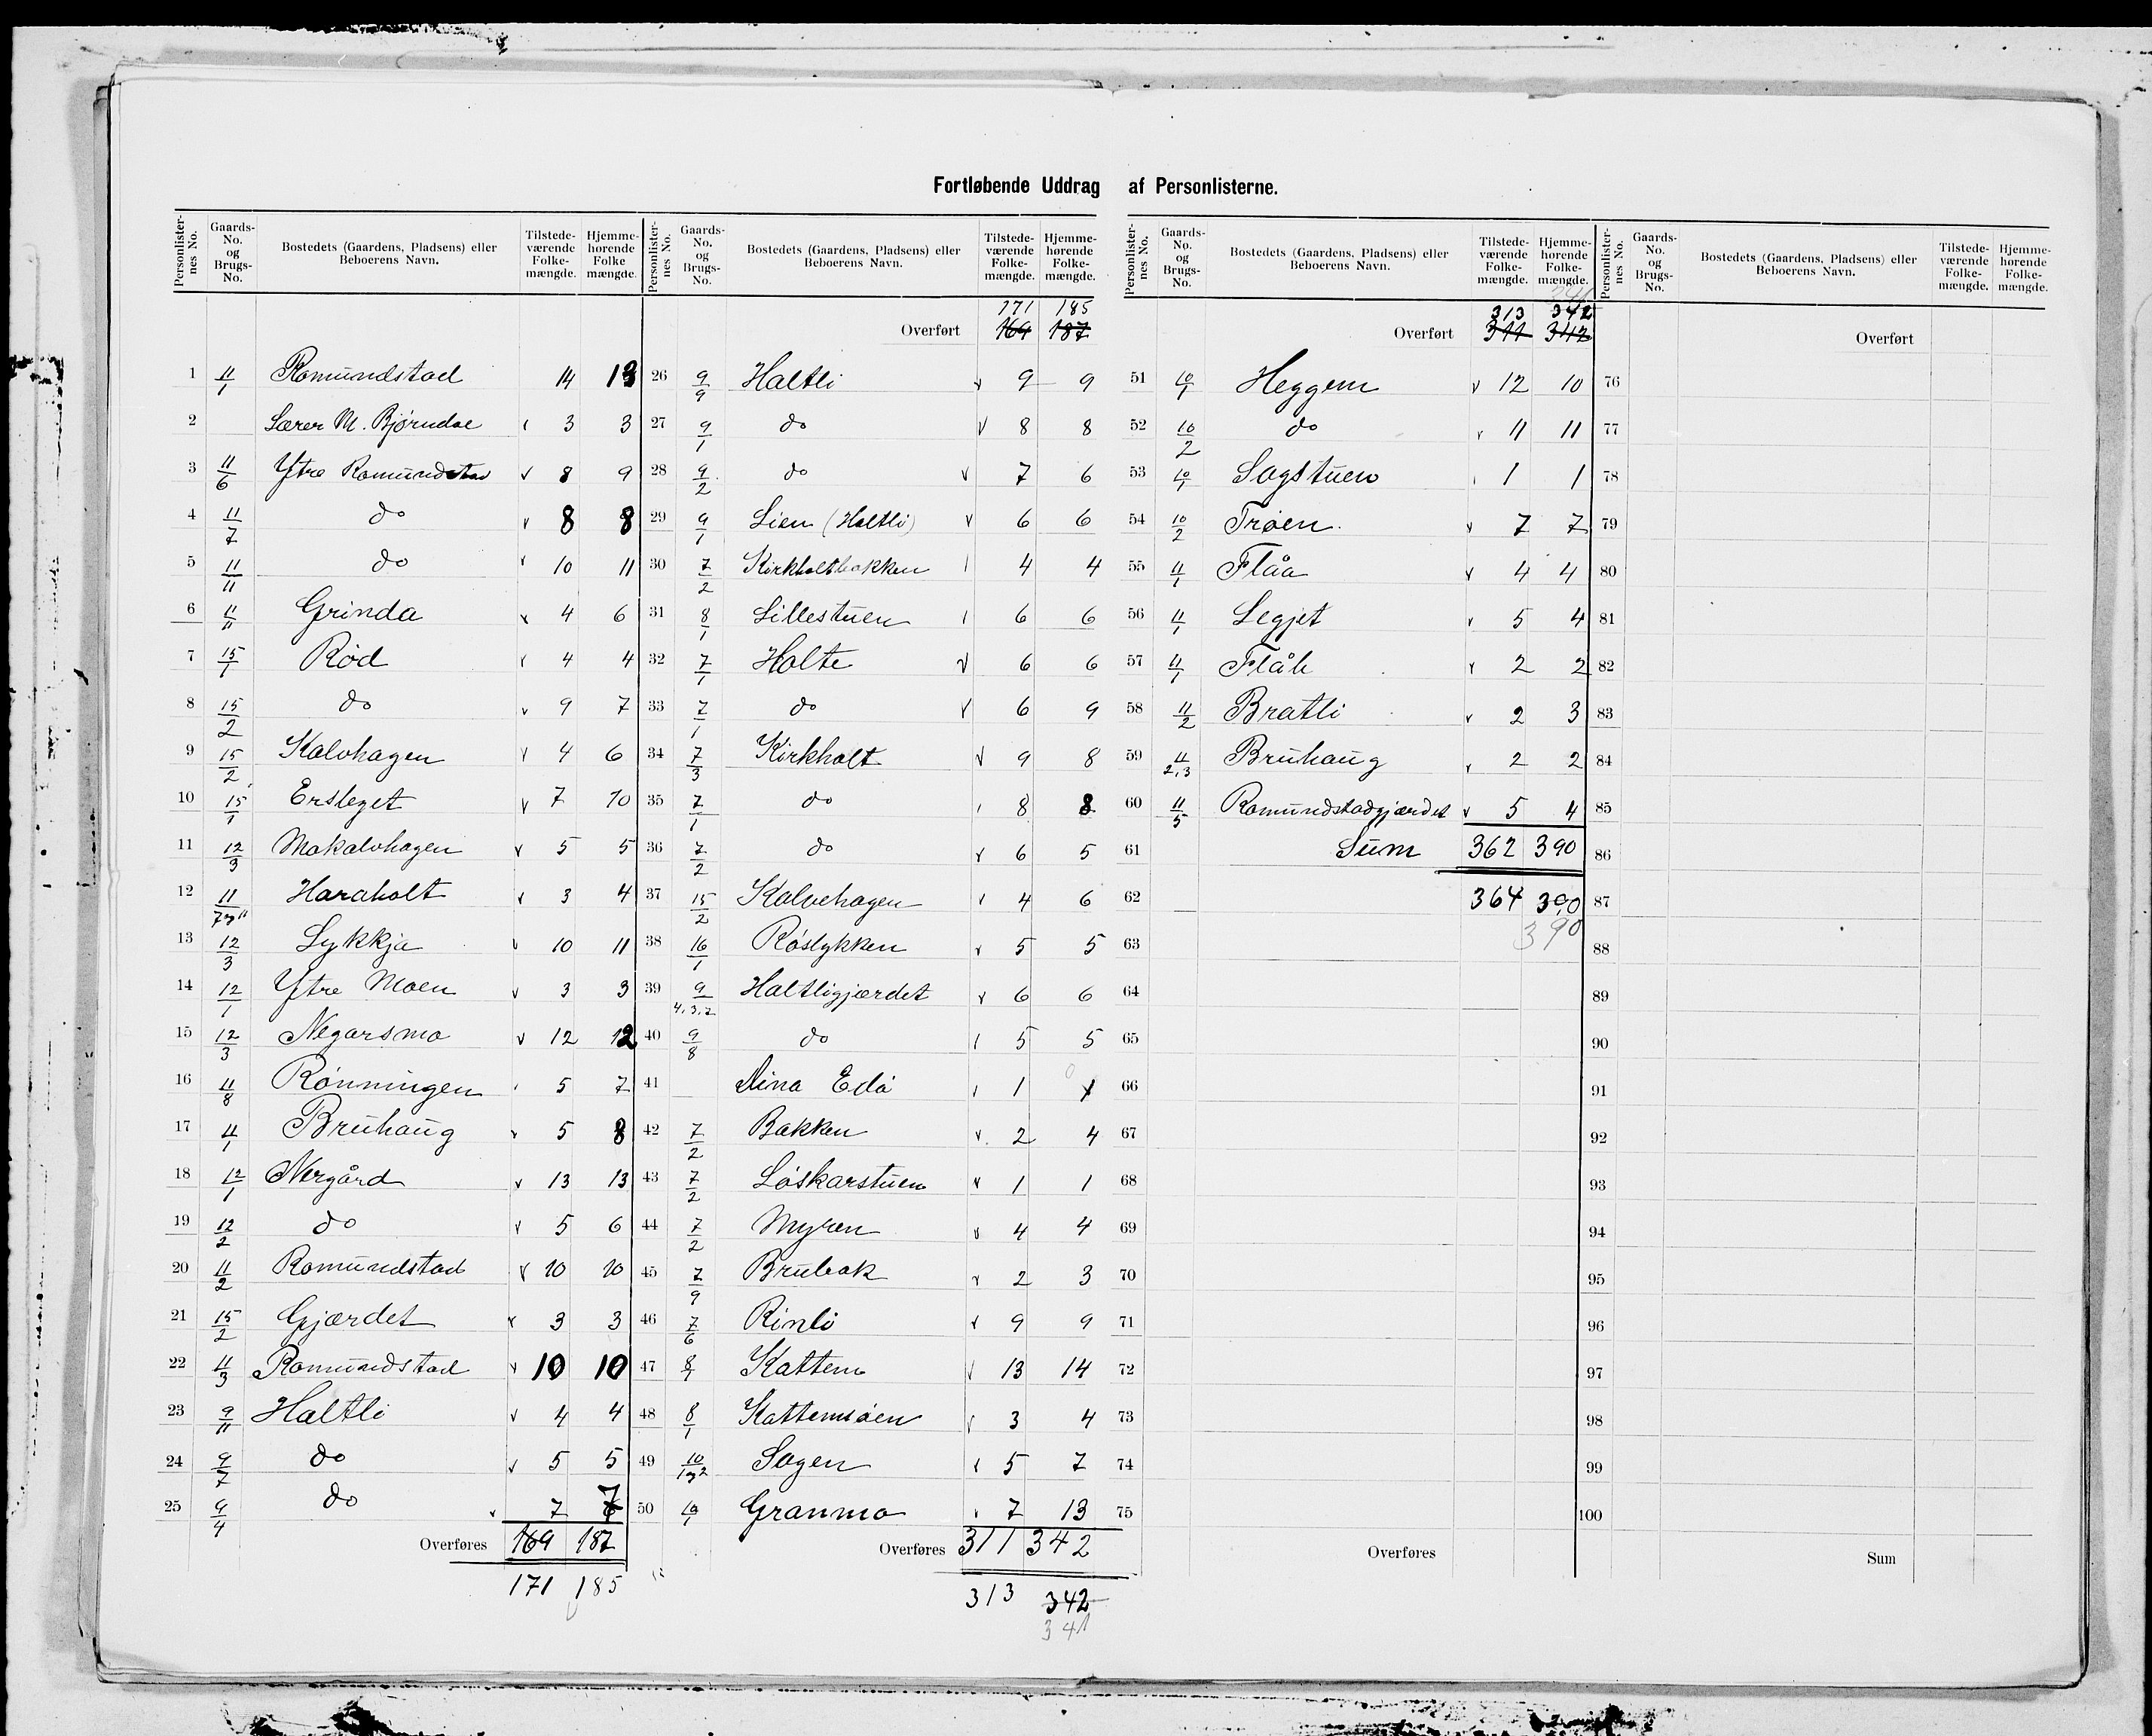 Fortløbende Uddrag af Personlisterne.
Personlister-nes No. | Gaards-No. og Brugs-No. | Bostedets (Gaardens, Pladsens) eller Beboerens Navn. | Tilstede-værende Folke-mængde. | Hjemme-hørende Folke mængde.
1 11/1 Romundstad 14 13
2 Lærer M. Bjørndal 3 3
3 11/6 Ytre Romundstad 8 9
4 11/7 do 8 8
5 11/11 do 10 11
6 11/11 Grinda 4 6
7 15/1 Rød 4 4
8 15/2 do 9 7
9 15/2 Kalvhagen 4 6
10 15/1 Ersleget 7 10
11 12/3 Mokalvhagen 5 5
12 11/7 og 11 Haraholt 3 4
13 12/3 Lykkja 10 11
14 12/1 Ytre Moen 3 3
15 12/3 Negarsmo 12 12
16 11/8 Rønningen 5 7
17 11/1 Bruhaug 5 8
18 12/1 Nergård 13 13
19 12/2 do 5 6
20 11/2 Romundstad 10 10
21 15/2 Gjærdet 3 3
22 11/3 Romundstad 10 10
23 9/11 Haltli 4 4
24 9/7 do 5 5
25 9/4 do 7 7
Overføres 169 187
171 185
Personlister-nes No. | Gaards-No. og Brugs-No. | Bostedets (Gaardens, Pladsens) eller Beboerens Navn. | Tilstede-værende Folke-mængde. | Hjemme-hørende Folke-mængde.
171 185
Overført 169 187
26 9/9 Haltli 9 9
27 9/1 do 8 8
28 9/2 do 7 6
29 9/1 Lien (Haltli) 6 6
30 7/2 Kirkholtbakken 4 4
31 8/1 Lillestuen 6 6
32 7/1 Holte 6 6
33 7/1 do 6 9
34 7/3 Kirkholt 9 8
35 7/1 do 8 8
36 7/2 do 6 5
37 15/2 Kalvehagen 4 6
38 16/1 Røslykken 5 5
39 9/4,3,2 Haltligjærdet 6 6
40 9/8 do 5 5
41 Lina Edø 1 1 0
42 7/2 Bakken 2 4
43 7/2 Løskarstuen 1 1
44 7/2 Myren 4 4
45 7/9 Brubak 2 3
46 7/6 Rinli 9 9
47 8/1 Kattem 13 14
48 8/1 Kattemsøen 3 4
49 10/1 og 2 Sagen 5 7
50 10/1 Granmo 7 13
Overføres 311 342
313 342
341
Personlister-nes No. | Gaards-No. og Brugs-No. | Bostedets (Gaardens, Pladsens) eller Beboerens Navn. | Tilstede-værende Folke-mængde. | Hjemme-hørende Folke-mængde.
341
313 342
Overført 311 342
51 10/1 Heggem 12 10
52 10/2 do 11 11
53 10/1 Sagstuen 1 1
54 10/2 Trøen 7 7
55 11/1 Flåa 4 4
56 11/1 Legjet 5 4
57 11/1 Flåh 2 2
58 11/2 Bratli 2 3
59 11/2,3 Bruhaug 2 2
60 11/5 Romundstadgjærdet 5 4
61 Sum 362 390
62 364 390
63 390
64
65
66
67
68
69
70
71
72
73
74
75
Overføres
Personlister-nes No. | Gaards-No. og Brugs-No. | Bostedets (Gaardens, Pladsens) eller Beboerens Navn. | Tilstede-værende Folke-mængde. | Hjemme-hørende Folke-mængde.
Overført
76
77
78
79
80
81
82
83
84
85
86
87
88
89
90
91
92
93
94
95
96
97
98
99
100
Sum